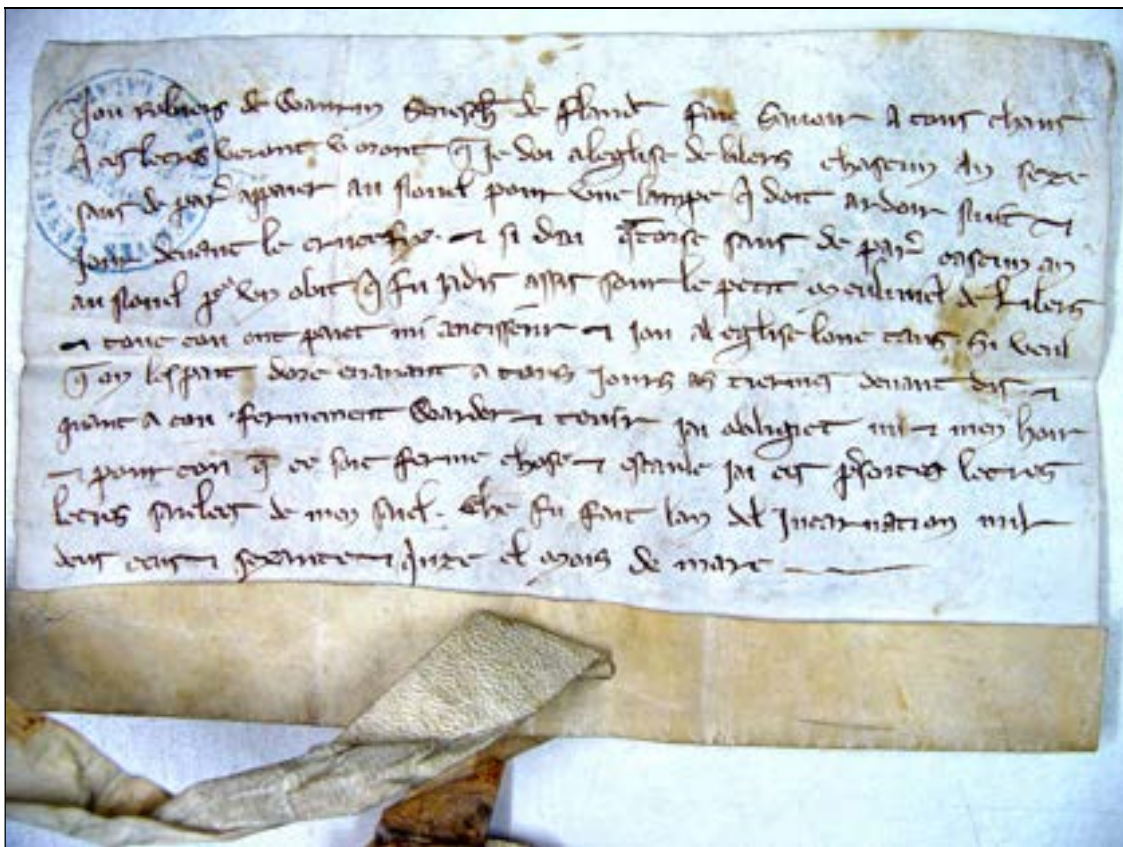 Jou robiers de Wavrin senesch de fland fac savoir a tous chaus
q ces letres veront v oront q je doi a leglise de lilers chascun an seze
saus de par apaier au nouel pour une lampe q doit ardoir nuit et
jour devant le crucefis et si doi qtorse saus de par cascun an
au nouel por un obit q fu jadis assis sour le petit meulinel de lilers
et tout cou ont paiet mi ancisseur et jou al eglise lonc tans si veul
q on les pait dore enavant a tous jours as tiermes devant dis et
quant a cou fermement warder et tenir jai obligiet mi et mon hoir
et pour cou q ce soit ferme chose et estaule jai ces letres
letres saielees de mon saiel. Che fu fait lan del Incarnation mil
deus cens et sexante et Quze el mois de marc